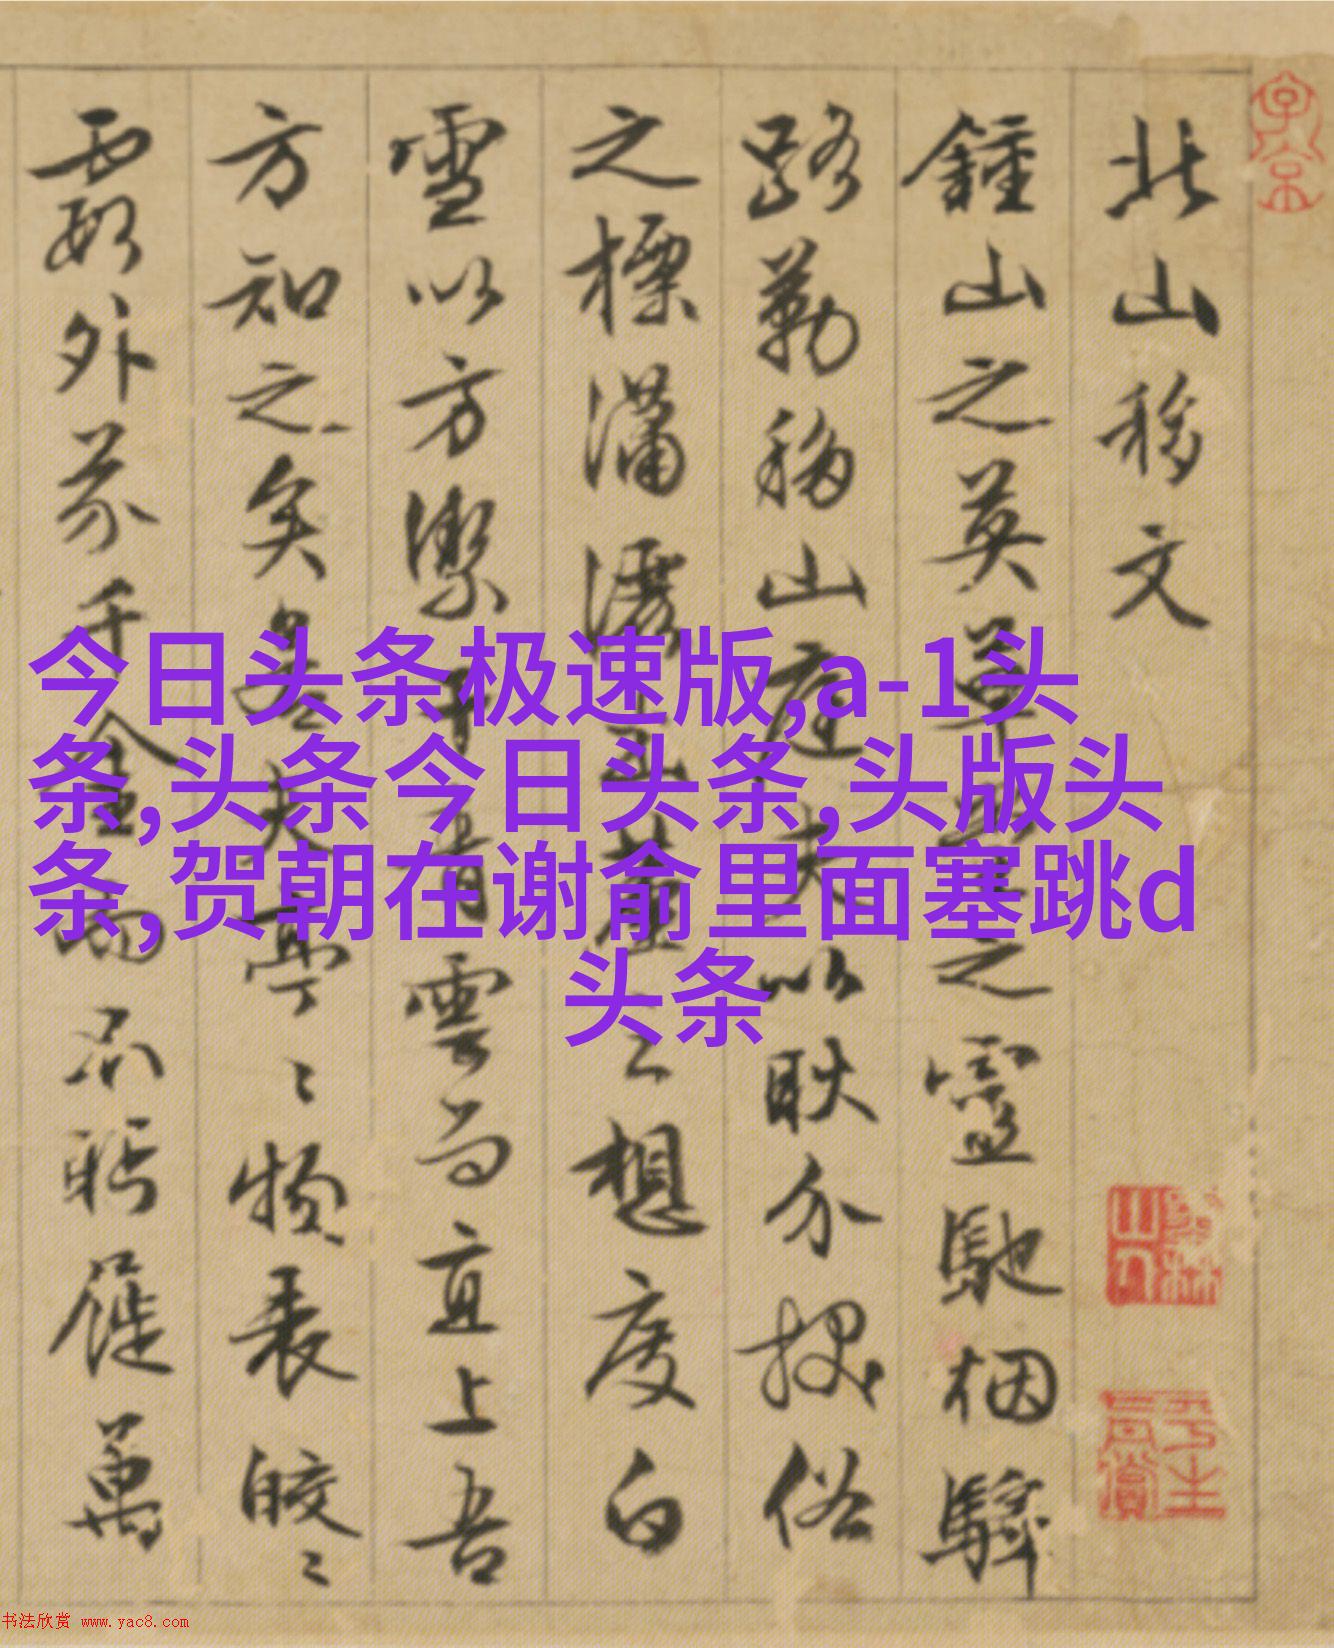 北山移文
鍾山之英草堂之靈馳烟驛
路勒移山庭夫以耿介拔俗
之標瀟灑出塵之想度白
雪以方潔干青雲而直上吾
方知之矣若夫亭〻物表皎〻
霞外芥千金而不眄屣萬
今日头条极速版,a-1头
条,头条今日头条,头版头
条,贺朝在谢俞里面塞跳d
头条
书法欣赏 www.yac8.com